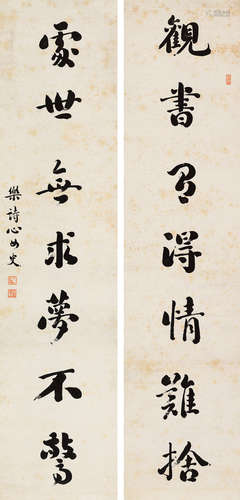 觀書有得情難捨
處世無求夢不驚
樂詩心女史